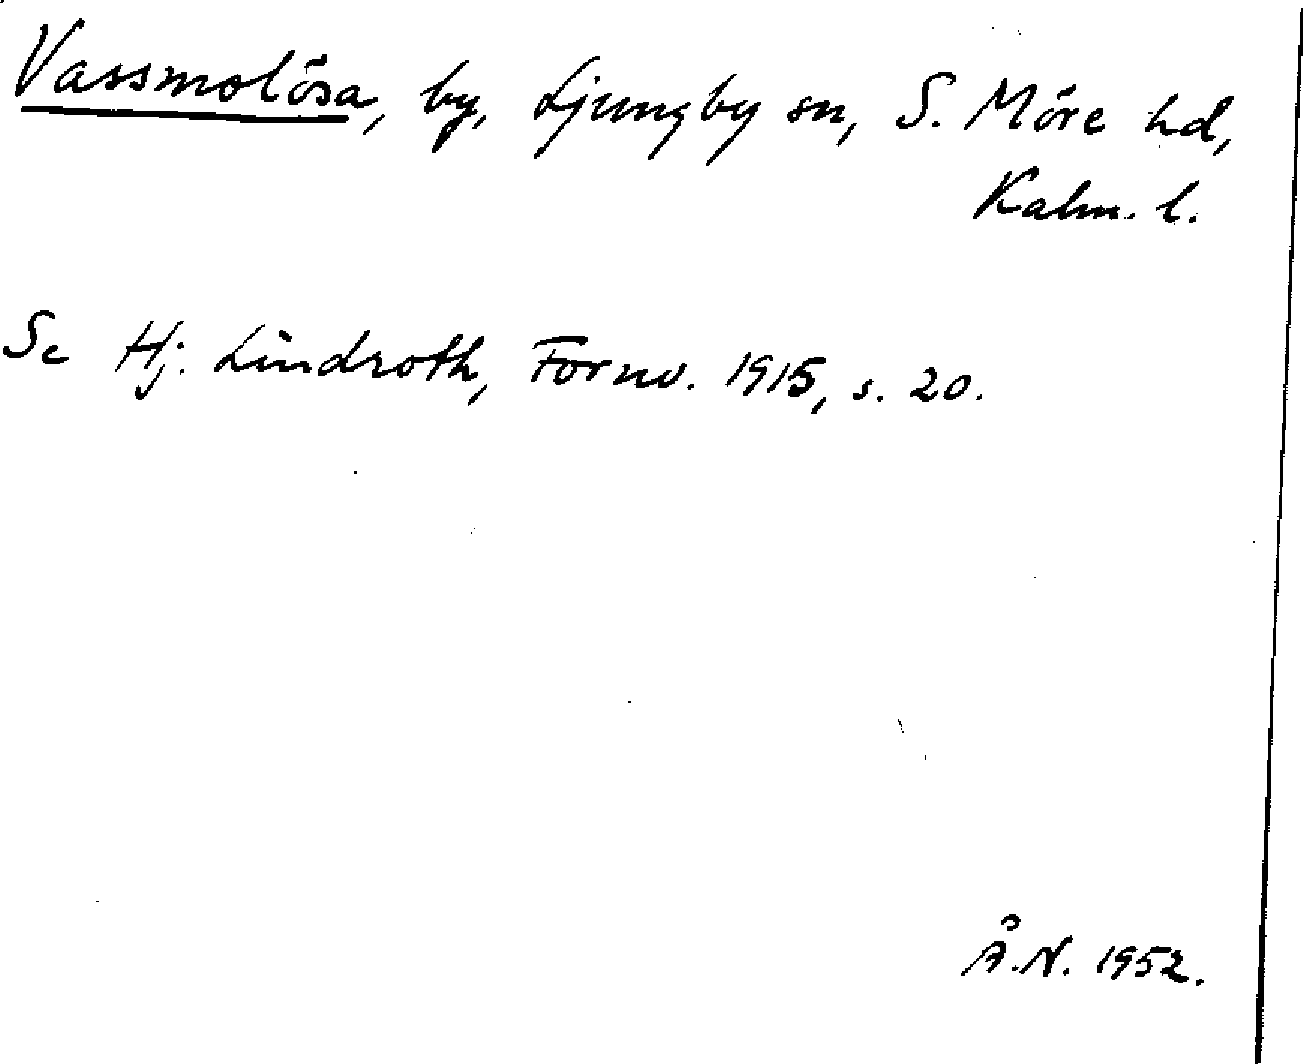 Vassmolösa, by, Ljungby sn, S. Möre hd,
Kalm. l.
Se Hj. Lindroth, Fornv. 1915, s. 20.
Å.N. 1952.